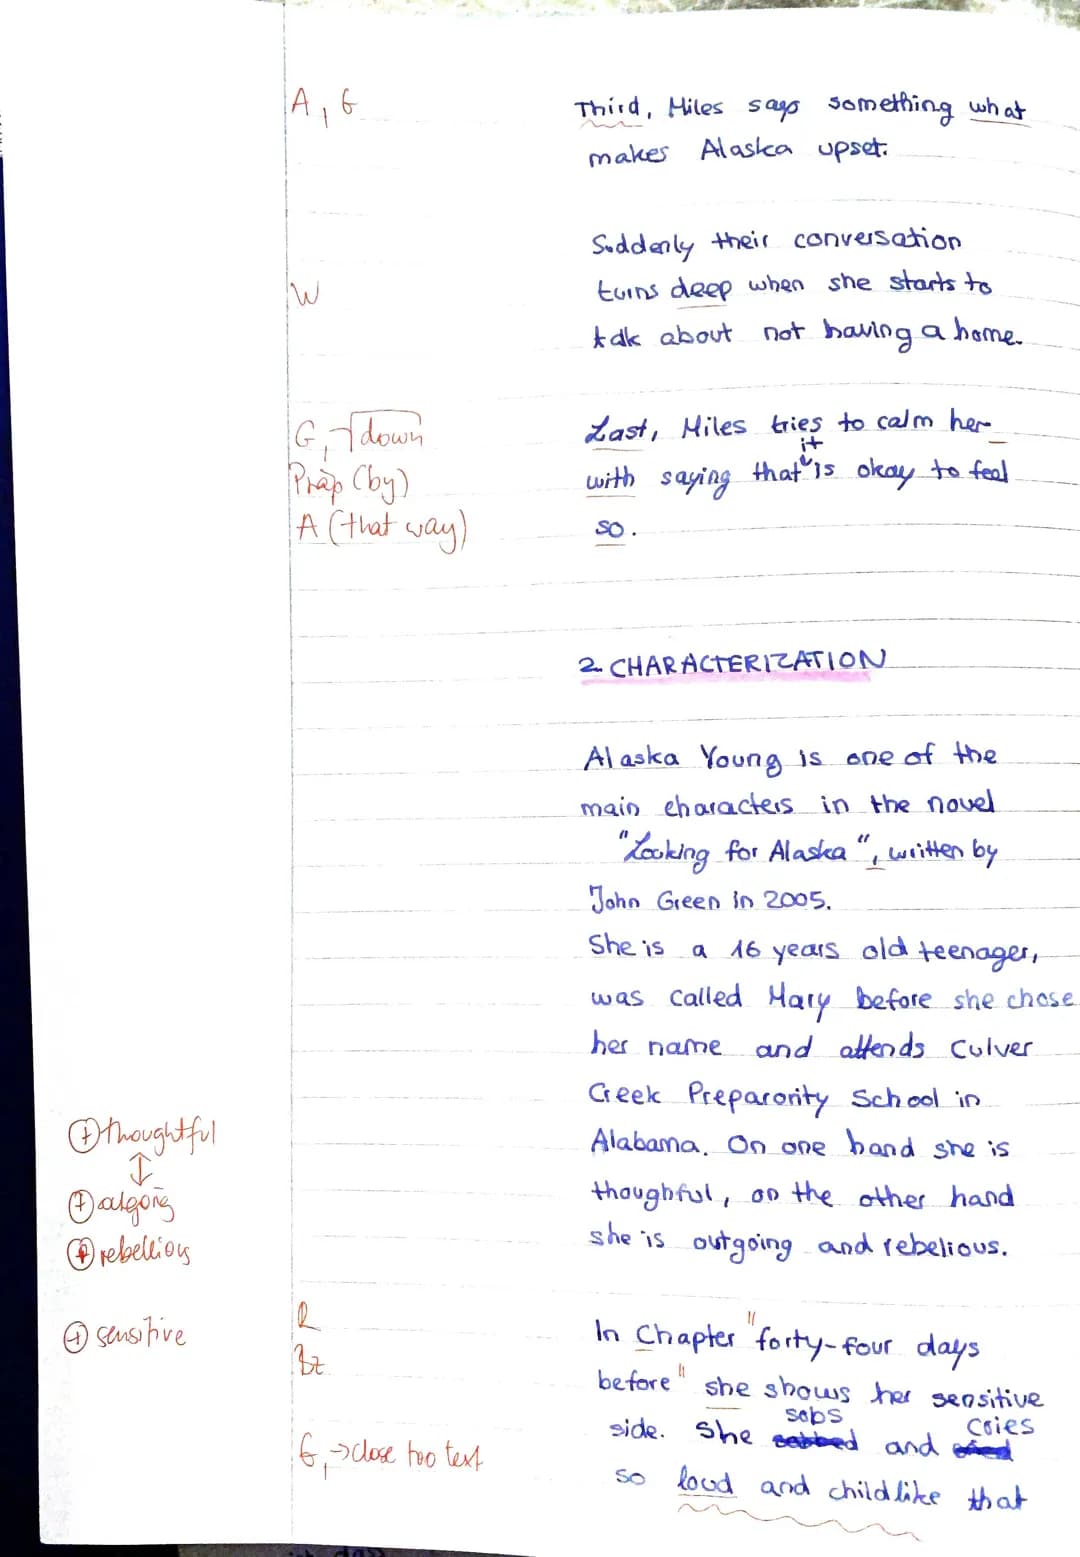 A, G
Third, Miles says something what
makes Alaska upset.
Suddenly their conversation
W
turns deep when she starts to
talk about not having a home.
G, down
Last, Miles tries to calm her
it
Präp (by)
with saying that is okay to feel
A (that way)
so.
2. CHARACTERIZATION
Alaska Young is one of the
main characters in the novel
"Looking for Alaska", written by
John Green in 2005.
She is a 16 years old teenager,
was called Mary before she chose
her name and attends Culver
Creek Preparority School in
+ thoughtful
Alabama. On one hand she is
+ thoughful, on the other hand
+ rebellious
she is outgoing and rebelious.
R
+ sensitive
In Chapter "forty-four days
Bz
before" she shows her sensitive
sobs cries
side. She sobbed and cried
G, → close too text
so loud and childlike that